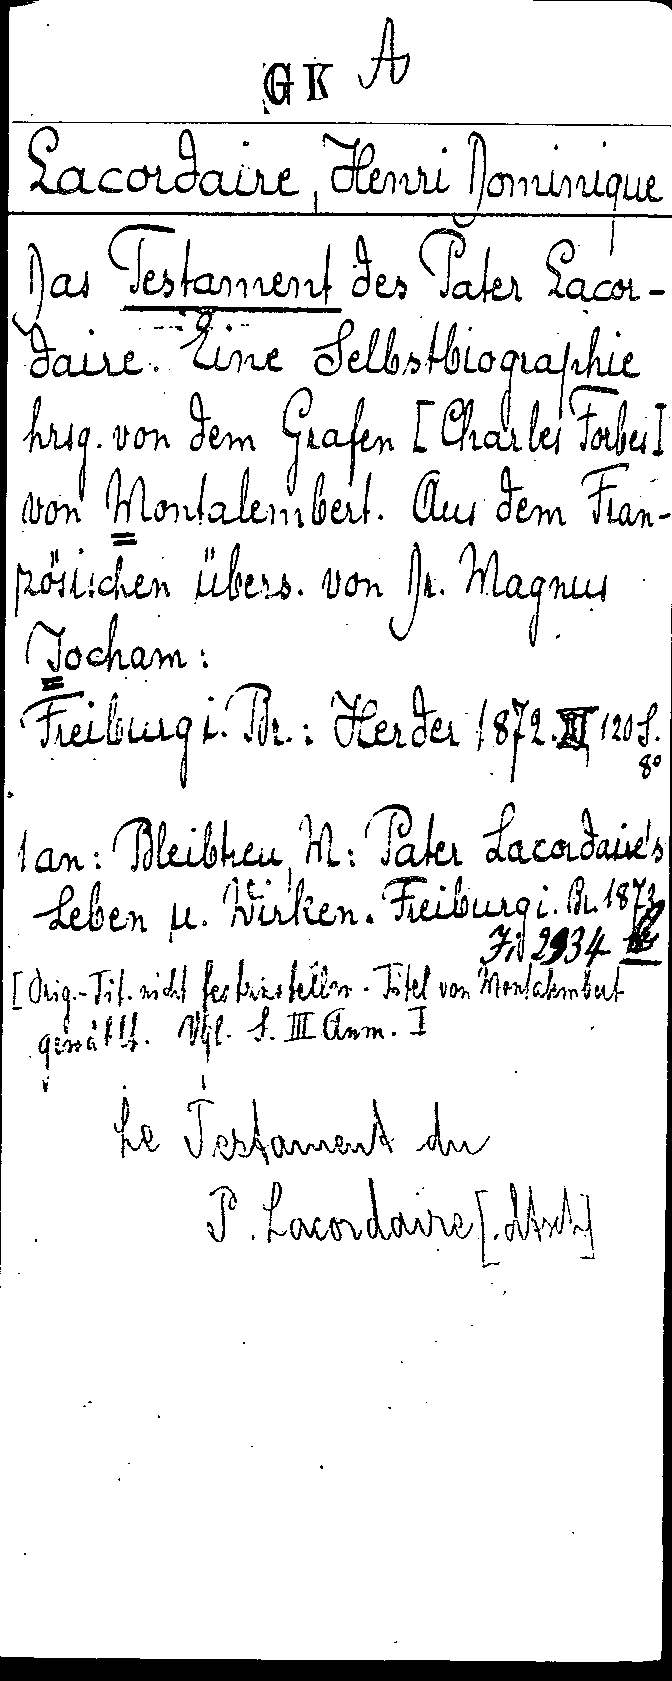 GK A
Lacordaire, Henri Dominique
Das Testament des Pater Lacor-
daire. Eine Selbstbiographie
hrsg. von dem Grafen [Charles Forbes]
von Montalembert. Aus dem Fran-
zösischen übers. von Dr. Magnus
Jocham:
Freiburg i. Br.: Herder 1872. 120 S.
8°
1 an: Bleibtreu, M: Pater Lacordaire's
Leben u. Wirken. Freiburg i. Br. 1873
2934
[Orig.-Tit. nicht festzustellen. Titel von Montalembert
gewählt. Vgl. S. III Anm. I
Le Testament du
P. Lacordaire [.dtsch.]